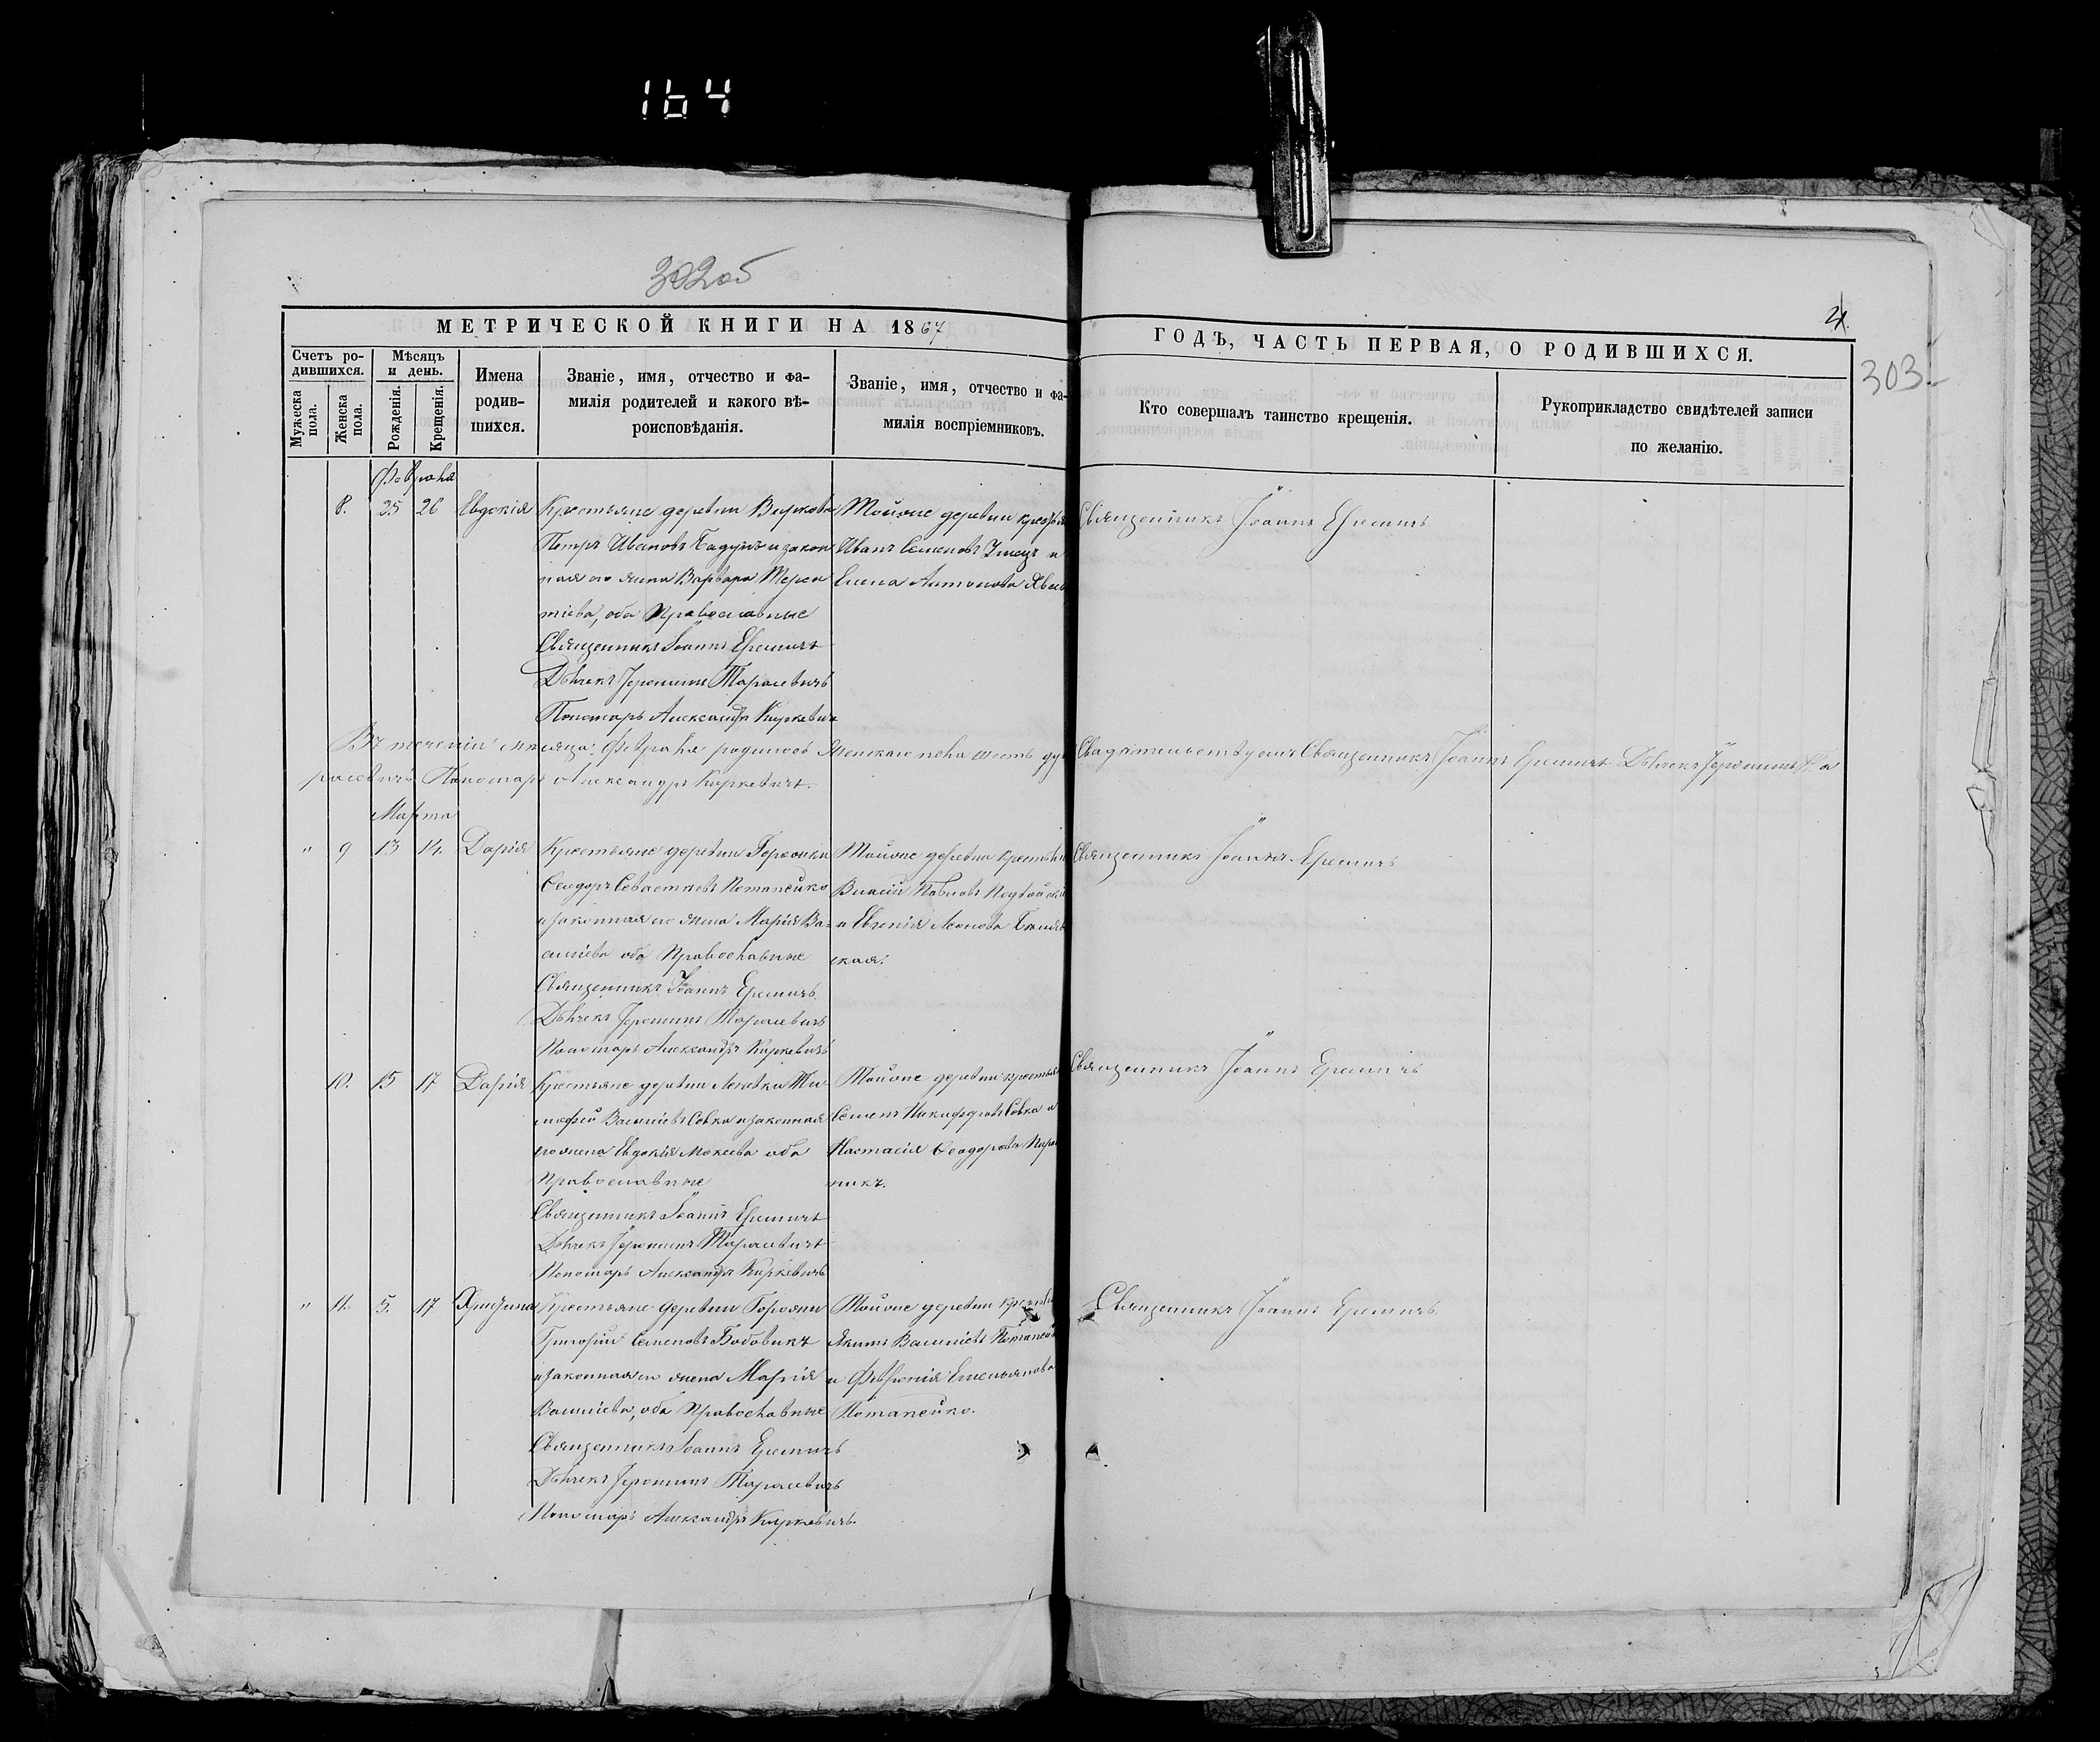 164
302об
МЕТРИЧЕСКОЙ КНИГИ НА 1867
ГОДЪ, ЧАСТЬ ПЕРВАЯ, О РОДИВШИХСЯ.
303
Счетъ ро-
дившихся.
Мужеска
пола.
Женска
пола.
Мѣсяцъ
и день.
Рожденія.
Крещенія.
Имена
родив-
шихся.
Званіе, имя, отчество и фа-
милія родителей и какого вѣ-
роисповѣданія.
Званіе, имя, отчество и фа-
милія воспріемниковъ.
Кто совершалъ таинство крещенія.
Рукоприкладство свидѣтелей записи
по желанію.
Февраля
8. 25 26 Евдокія
Крестьяне деревни
Петръ Ивановъ и закон
ная его жена Варвара
тіева, оба Православные
Священникъ Іоаннъ Еремичъ
Дьячекъ Іеронимъ Тарасевичъ
Пономарь Александръ Киркевичъ
Тойоже деревни
Иванъ Семеновъ и
Елена Антонова
Священникъ Іоаннъ Еремичъ
Въ теченіи мѣсяца Февраля родилось Женскаго пола шесть
Свидѣтельствуемъ Священникъ Іоаннъ Еремичъ Дьячекъ Іеронимъ
расевичъ Пономарь Александръ Киркевичъ.
Марта
" 9 13 14. Дарія
Крестьяне деревни
Феодоръ Потапейко
и законная его жена Марія Ва-
силіева оба Православные
Священникъ Іоаннъ Еремичъ
Дьячекъ Іеронимъ Тарасевичъ
Пономарь Александръ Киркевичъ
Тойоже деревни
Павловъ
и Евгенія
ская.
Священникъ Іоаннъ Еремичъ
10. 15 17 Дарія
Крестьяне деревни Ти-
мофей Василіевъ Совка и законная
его жена Евдокія Мокеева оба
Православные
Священникъ Іоаннъ Еремичъ
Дьячекъ Іеронимъ Тарасевичъ
Пономарь Александръ Киркевичъ
Тойоже деревни
Семенъ Никифоровъ Совка и
Настасія Феодорова
никъ.
Священникъ Іоаннъ Еремичъ
" 11. 5. 17
Крестьяне деревни
Григорій Семеновъ Бобовикъ
и законная его жена Марія
Василіева, оба Православные
Священникъ Іоаннъ Еремичъ
Дьячекъ Іеронимъ Тарасевичъ
Пономарь Александръ Киркевичъ.
Тойоже деревни
Якимъ Василіевъ
и Февронія Емельянова
Потапейко.
Священникъ Іоаннъ Еремичъ